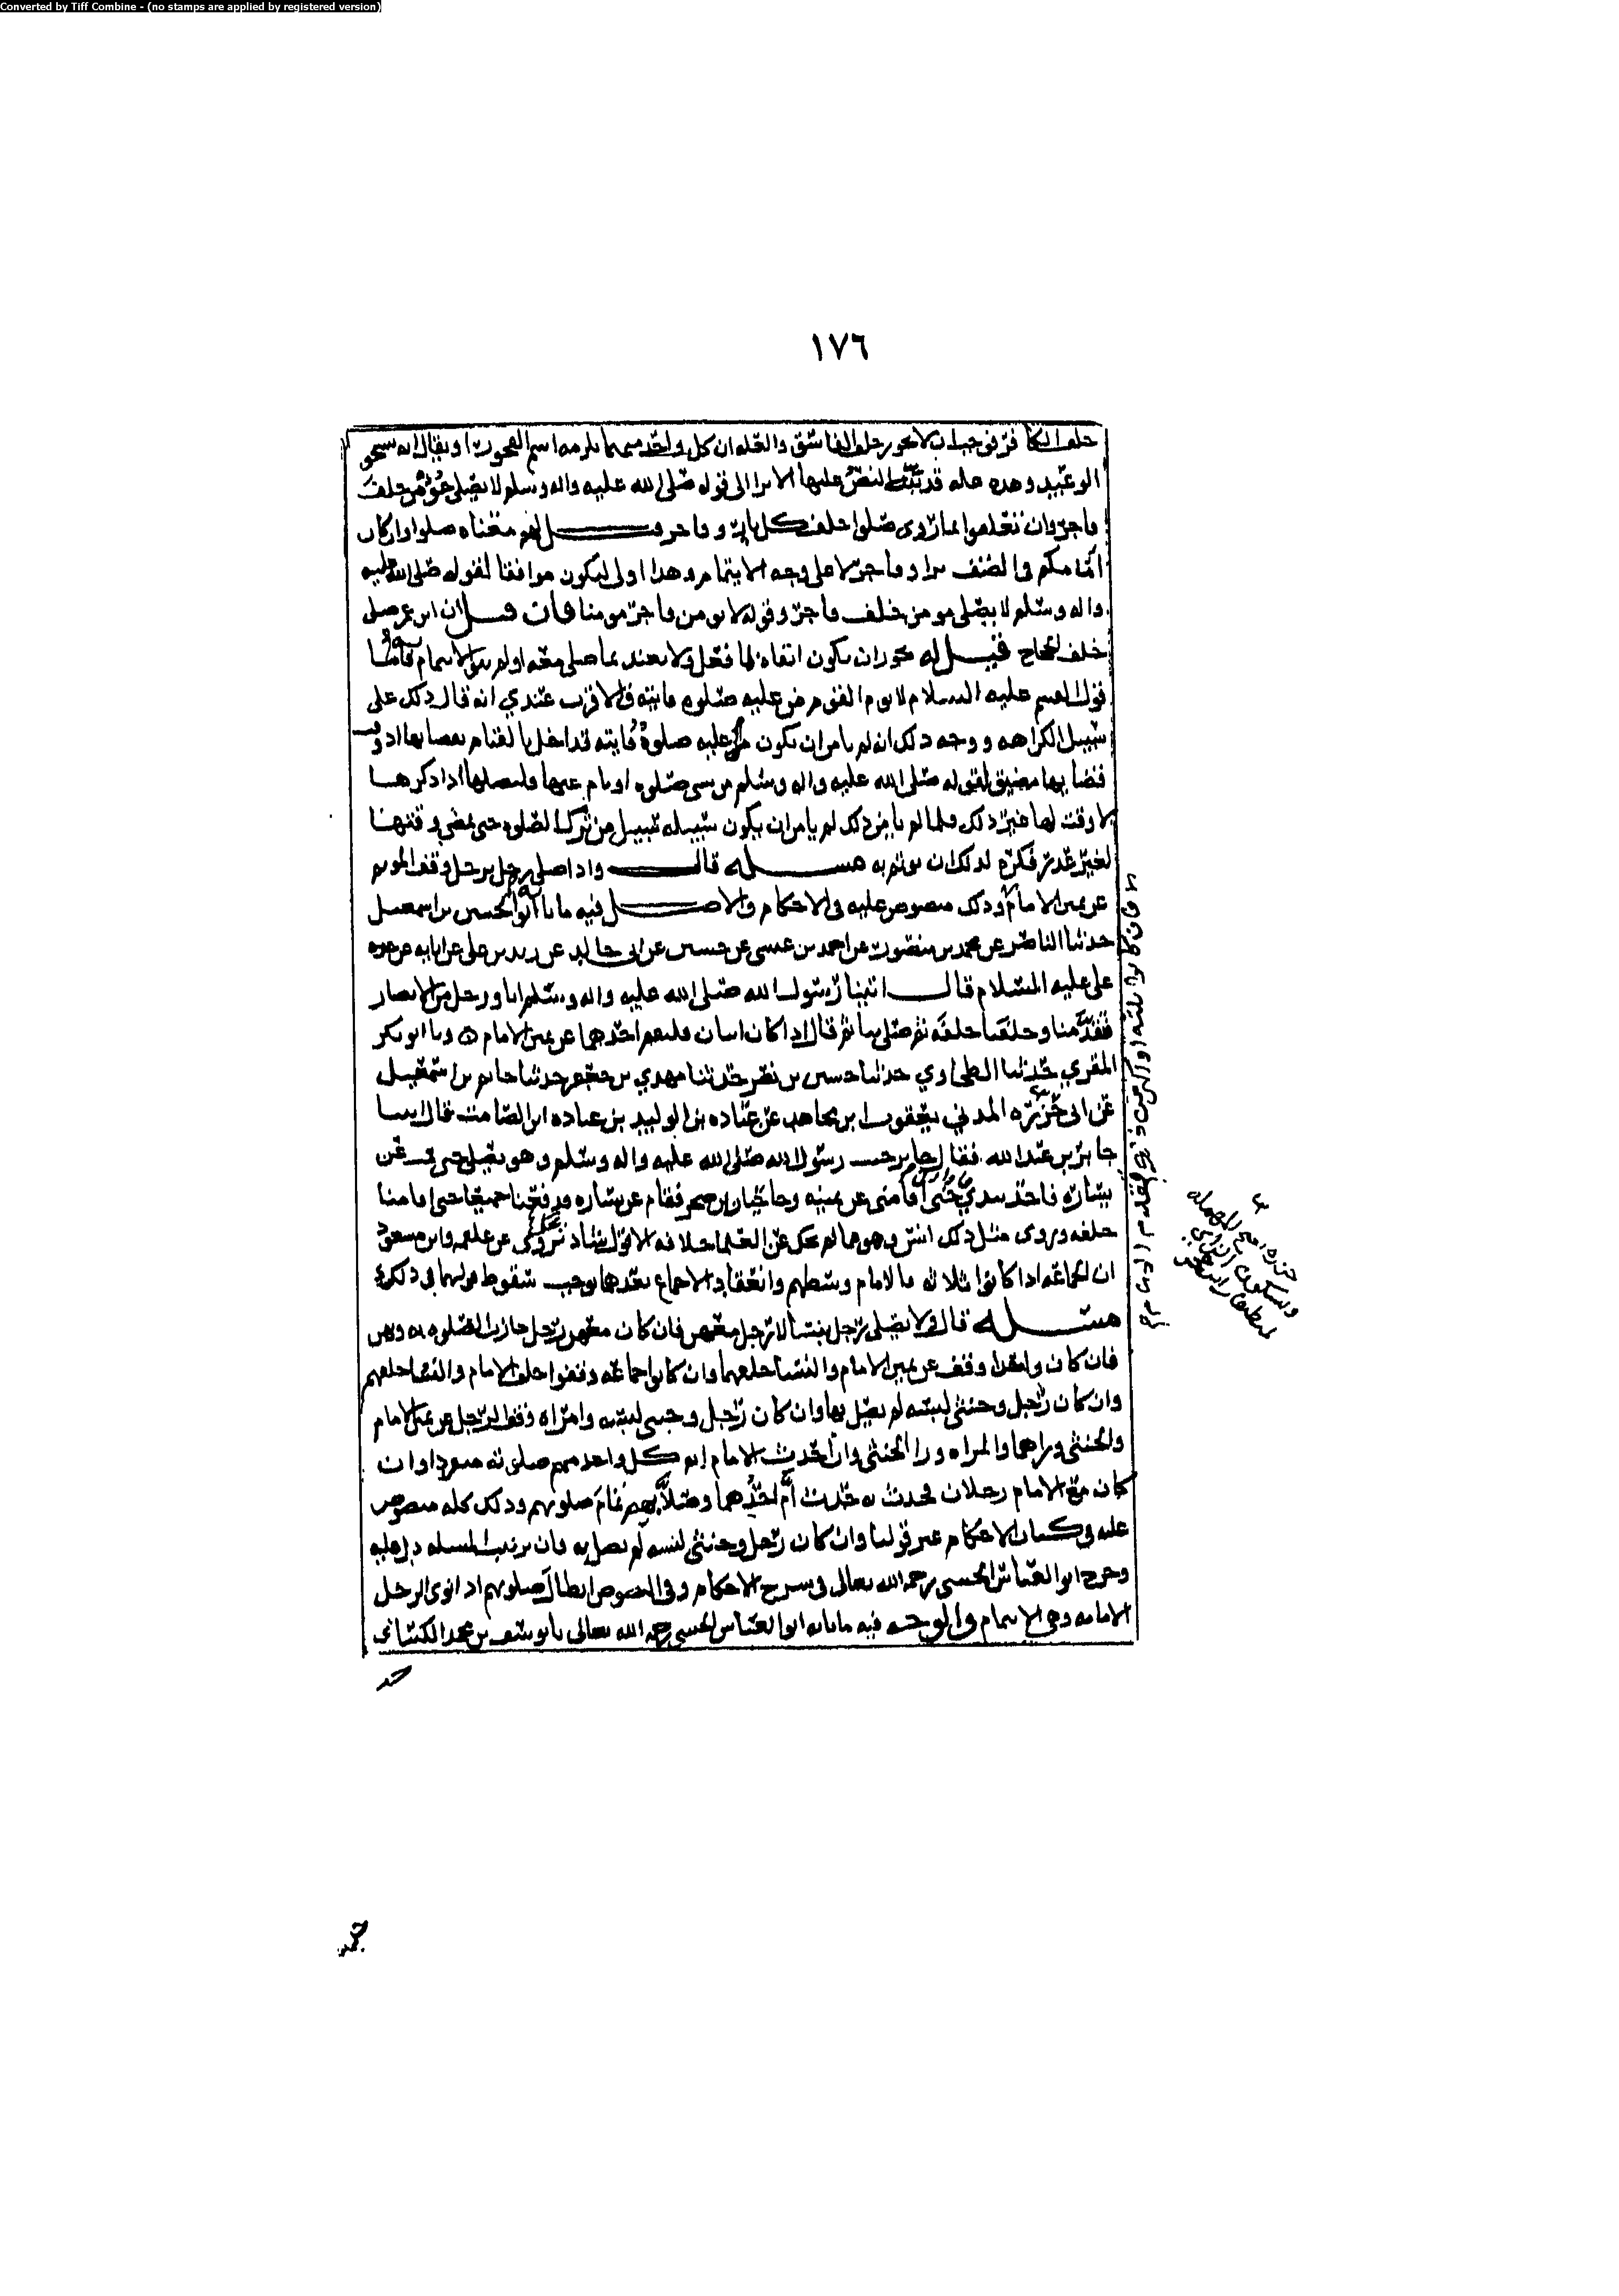 Converted by Tiff Combine - (no stamps are applied by registered version)
١٧٦
خلف الكافر فوجب ان لا تجوز خلف الفاسق والعلة ان كل واحد منهما يلزمه اسم الفجور او يقال انه يستحق
الوعيد وهذه علة قد نبه النص عليها الا ترا الى قوله صلى الله عليه واله وسلم لا يصلي مؤمن خلف
فاجر وان تعلقوا بما روى صلوا خلف كل بار وفاجر قيل لهم معناه صلوا وان كان
امامكم في الصف برا وفاجرا لا على وجه الايتمام وهذا اولى ليكون موافقا لقوله صلى الله عليه
واله وسلم لا يصلي مومن خلف فاجر وقوله لا يومن فاجر مومنا فان قيل ان ابن عمر صلى
خلف الحجاج قيل له يجوز ان يكون اتقاه فما فعل ولا يعتد بما صلى معه او لم ينو الايتمام به فاما
قول القسم عليه السلام لا يوم القوم من عليه صلوة فايتة فالاقرب عندي انه قال ذلك على
سبيل الكراهه ووجه ذلك انه لم يامن ان يكون من عليه صلوة فايتة قد اخل بالقيام بقضايها اذ وقت
قضايها مضيق لقوله صلى الله عليه واله وسلم من نسي صلوة او نام عنها فليصلها اذا ذكرها
لا وقت لها غير ذلك فلما لم يامن ذلك لم يامن ان يكون سبيله سبيل من ترك الصلوة حتى يمضي وقتها
لغير عذر فكره لذلك ان يوتم به مسله قال واذا صلى رجل برجل وقف الموتم به
عن يمين الامام وذلك منصوص عليه في الاحكام والاصل فيه ما نا ابو الحسين بن اسمعيل
حدثنا الناصر عن محمد بن منصور عن احمد بن عيسى عن حسين عن ابي خالد عن زيد بن علي عن ابايه عن
علي عليه السلام قال اتينا رسول الله صلى الله عليه واله وسلم انا ورجل من الانصار
فتقدمنا وخلفنا خلفه ثم صلى بنا ثم قال اذا كان اثنان فليقم احدهما عن يمين الامام ٥ ونا ابو بكر
المقري حدثنا الطحاوي حدثنا حسين بن نصر حدثنا مهدي بن جعفر حدثنا حاتم بن اسمعيل
عن ابي حزره المدني يعقوب بن مجاهد عن عباده بن الوليد بن عباده ابن الصامت قال اتينا
جابر بن عبد الله فقال جابر جيت رسول الله صلى الله عليه واله وسلم وهو يصلي حتى قمت عن
يساره فاخذ بيدي حتى اقامني عن يمينه وجا جبار بن صخر فقام عن يساره فدفعنا جميعا حتى اقامنا
خلفه وروى مثل ذلك انس وهو مما لم يحك عن العلما خلافه الا قول شاذ يروى عن علقمه وابن مسعود
ان الجماعه اذا كانوا ثلاثه فالامام وسطهم وانعقاد الاجماع بعدهما يوجب سقوط قولهما في ذلك
مسله قال ولا يصلي رجل بنسا لا رجل معهن فان كان معهن رجل جازت الصلوة به وبهن
فان كان واحدا وقف عن يمين الامام والنسا خلفهما وان كانوا جماعه وقفوا خلف الامام والنسا خلفهم
وان كان رجل وخنثى لبسه لم يصل بها وان كان رجل وخنثى لبسه وامراه وقف الرجل عن يمين الامام
والخنثى وراهما والمراه ورا الخنثى وان احدث الامام اتم كل واحد منهم صلوته منفردا وان
كان مع الامام رجلان فحدث به حدث ام احدهما وصلا بهم تمام صلوتهم وذلك كله منصوص
عليه في كتاب الاحكام غير قولنا وان كان رجل وخنثى لبسه لم يصل به فان ترتيب المسله دل عليه
وخرج ابو العباس الحسني رحمه الله تعالى في شرح الاحكام وفي النصوص ابطال صلوتهم اذا نوى الرجل
الامامه وهي الايتمام والوجه فيه ما نا به ابو العباس الحسني رحمه الله تعالى نا يوسف بن محمد الكسائي